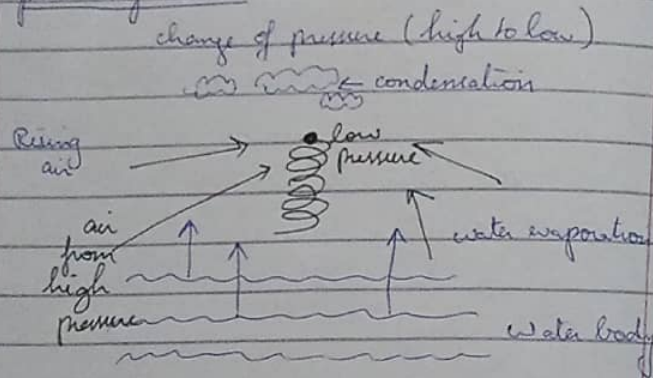 change of pressure (high to low)
condensation
Rising
air
low
pressure
air
from
high
pressure
water evaporation
water body